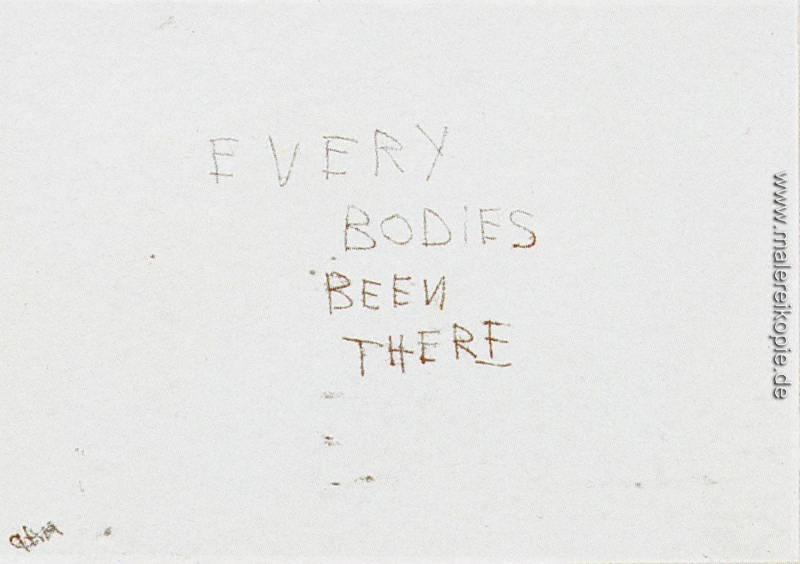 EVERY
BODIES
BEEN
THERE
www.malereikopie.de